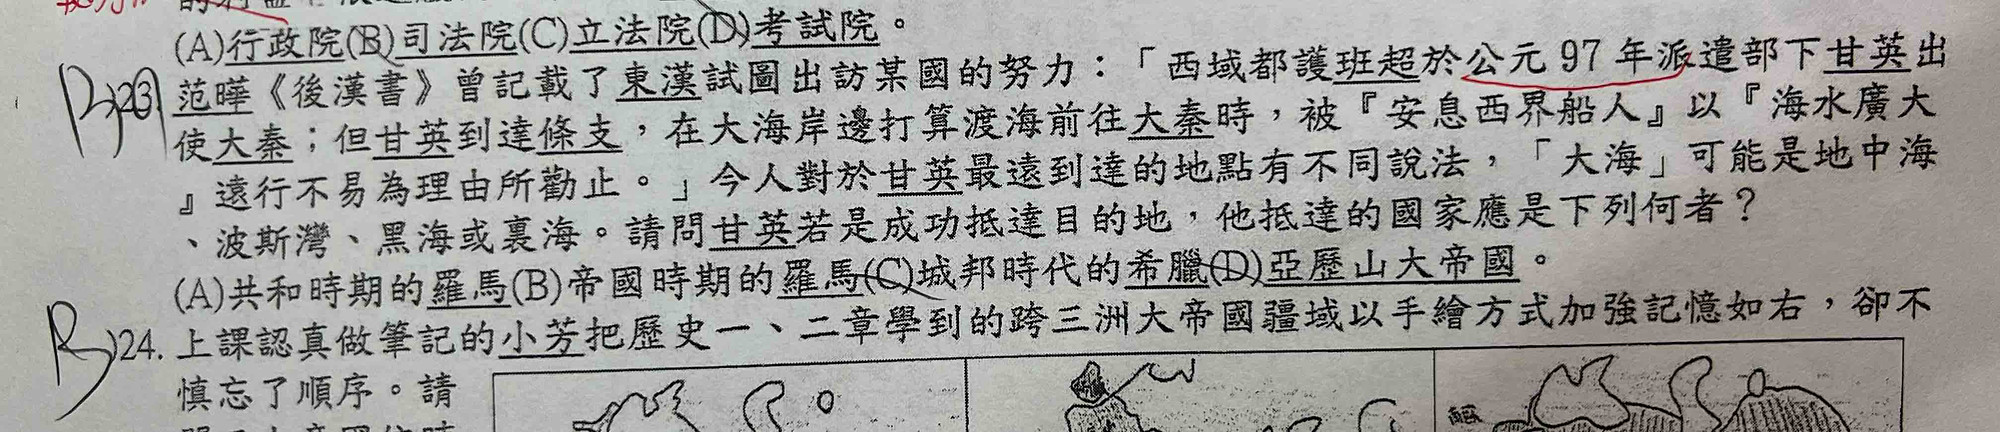 (A)行政院(B)司法院(C)立法院(D)考試院。
B 23. 范曄《後漢書》曾記載了東漢試圖出訪某國的努力：「西域都護班超於公元 97 年派遣部下甘英出
使大秦；但甘英到達條支，在大海岸邊打算渡海前往大秦時，被『安息西界船人』以『海水廣大
』遠行不易為理由所勸止。」今人對於甘英最遠到達的地點有不同說法，「大海」可能是地中海
、波斯灣、黑海或裏海。請問甘英若是成功抵達目的地，他抵達的國家應是下列何者？
(A)共和時期的羅馬(B)帝國時期的羅馬(C)城邦時代的希臘(D)亞歷山大帝國。
B 24. 上課認真做筆記的小芳把歷史一、二章學到的跨三洲大帝國疆域以手繪方式加強記憶如右，卻不
慎忘了順序。請